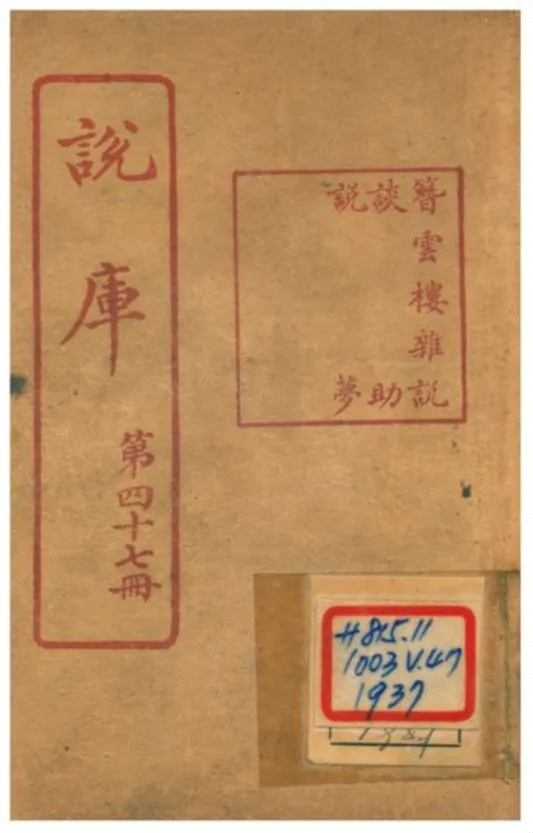 簪雲樓雜說
談助
說夢
說庫
第四十七冊
H 815.11
1003 V.47
1937